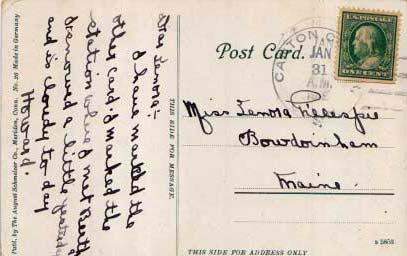 Publ. by The August Schmelzer Co., Meriden, Conn. No. 26 Made in Germany
Dear Lenora:-
I have marked the
other card. I marked the
station where I met Bert
It snowed a little yesterday
and is cloudy to day
Howard
THIS SIDE FOR MESSAGE.
Post Card.
CANTON
JAN
31
A.M.
U.S. POSTAGE
ONE CENT
Miss Lenora Gillespie
Bowdoinham
Maine
THIS SIDE FOR ADDRESS ONLY